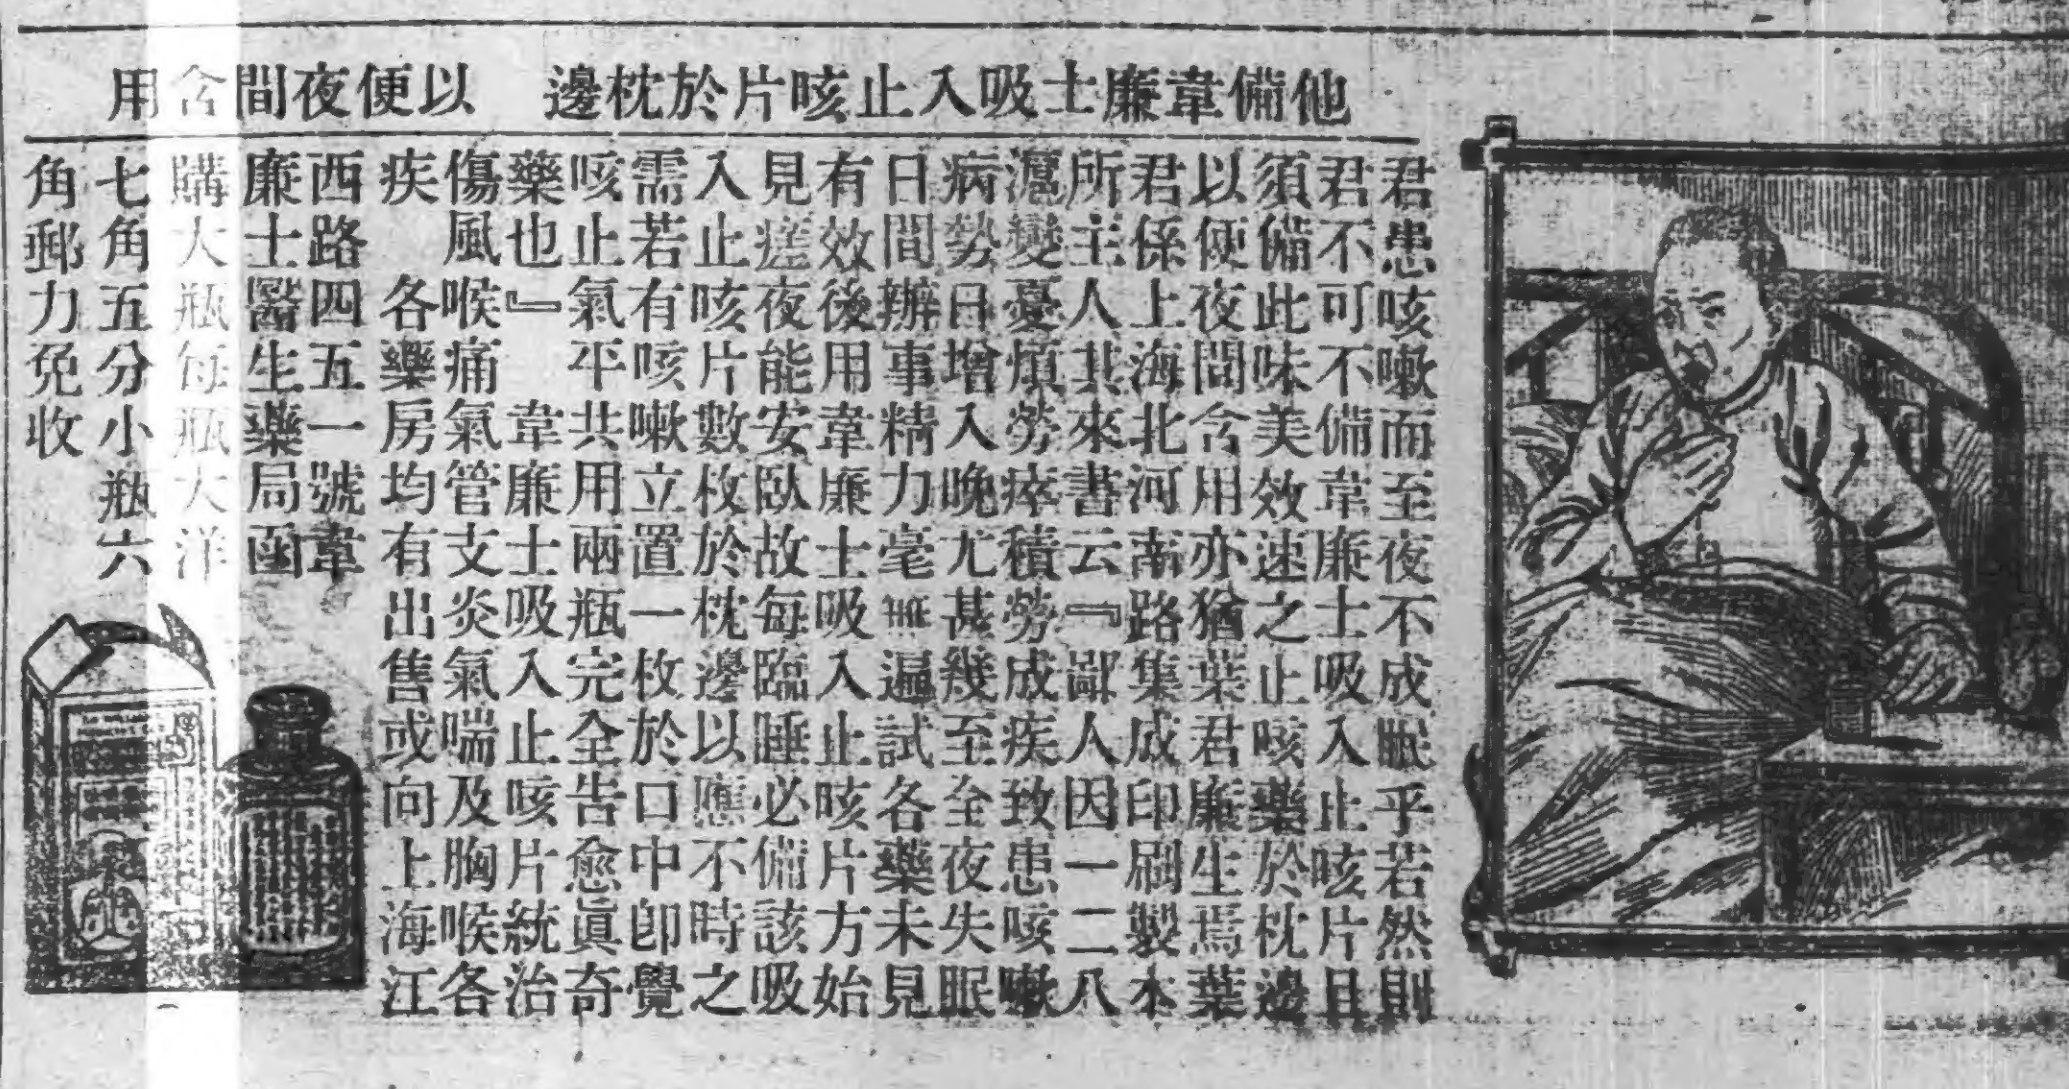 他備韋廉士吸入止咳片於枕邊　以便夜間含用
君患咳嗽而至夜不成眠乎若然則
君不可不備韋廉士吸入止咳片且
須備此味美效速之止咳藥於枕邊
以便夜間含用亦猶葉君廉生焉葉
君係上海北河南路集成印刷製本
所主人其來書云『鄙人因一二八
滬變憂煩勞瘁積勞成疾致患咳嗽
病勢日增入晚尤甚幾至全夜失眠
日間辦事精力毫無遍試各藥未見
有效後用韋廉士吸入止咳片方始
見瘥夜能安臥故每臨睡必備該吸
入止咳片數枚於枕邊以應不時之
需若有咳嗽立置一枚於口中卽覺
咳止氣平共用兩瓶完全告愈眞奇
藥也』　韋廉士吸入止咳片統治
傷風喉痛氣管支炎氣喘及胸喉各
疾　各藥房均有出售或向上海江
西路四五一號韋
廉士醫生藥局函
購大瓶每瓶大洋
七角五分小瓶六
角郵力免收